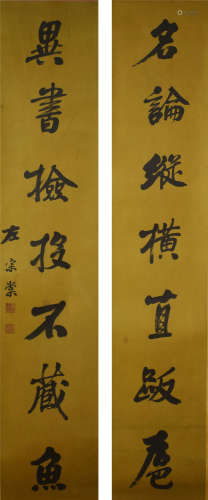 名論縱橫直蹶扈
異書撿授不藏魚
左宗棠